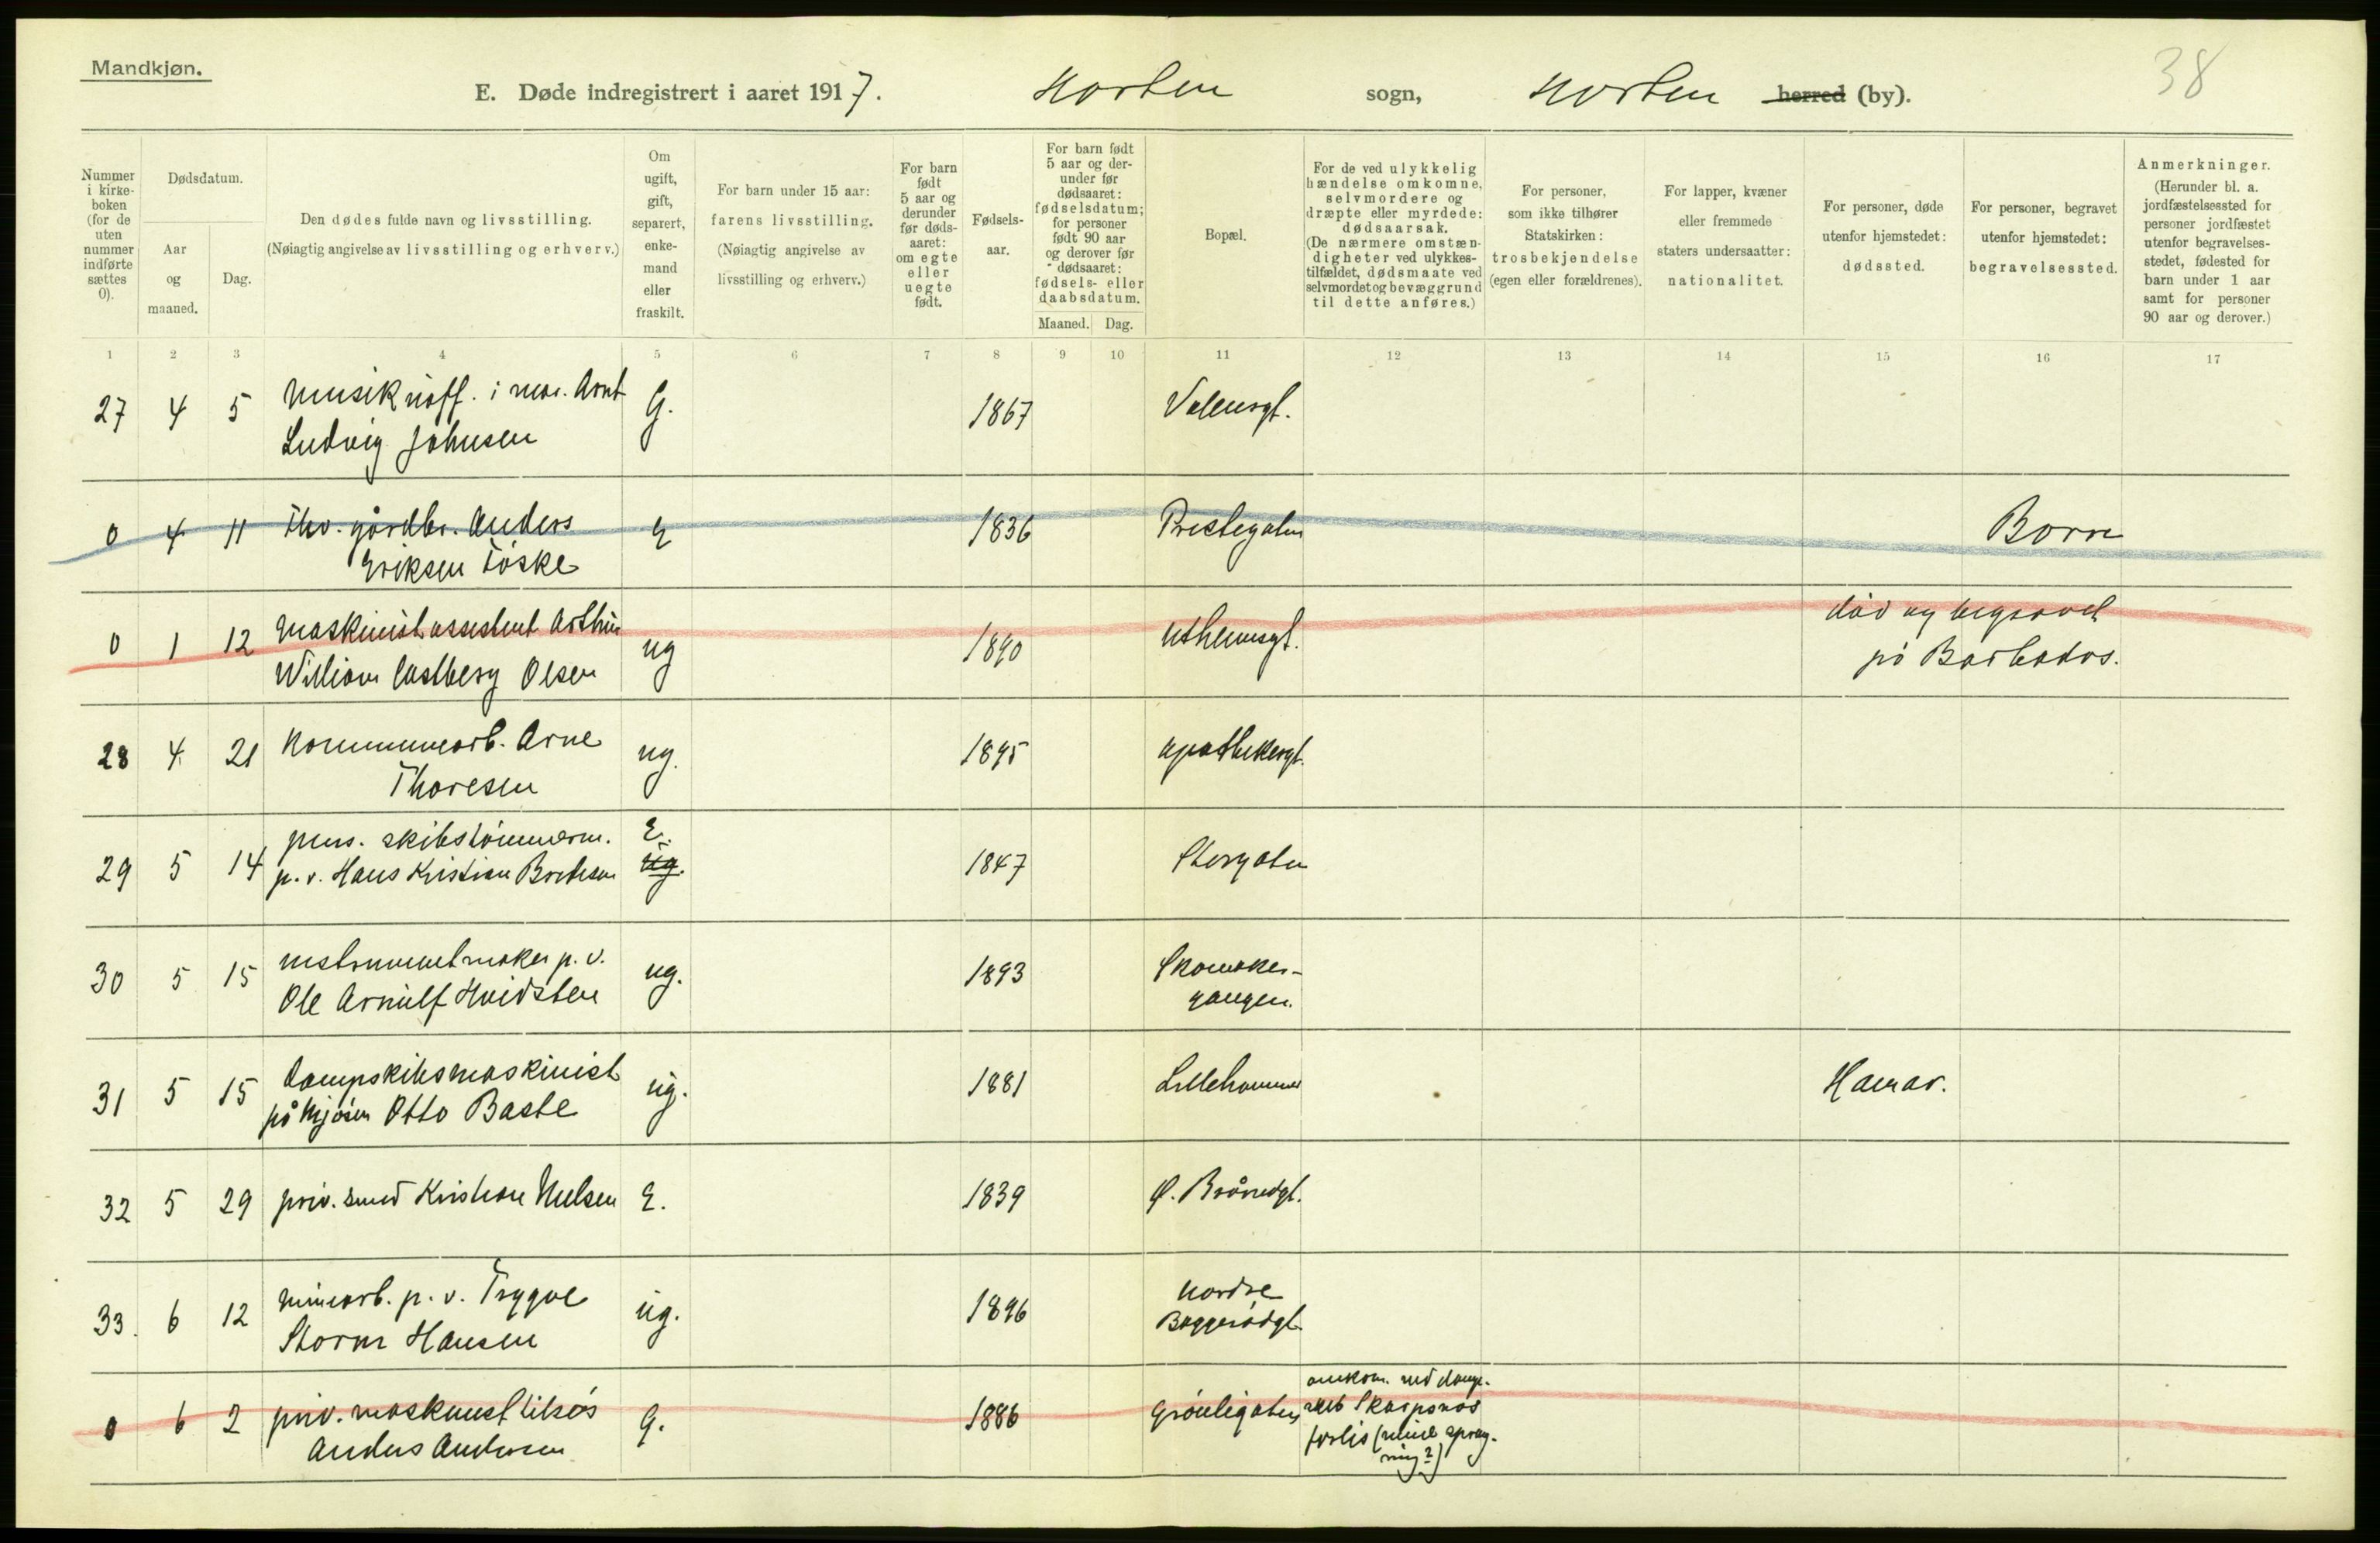 Mandkjøn.
38
E. Døde indregistrert i aaret 1917. Horten sogn, Horten herred (by).
Nummer i kirke- boken (for de uten nummer indførte sættes 0).
Dødsdatum.
Aar og maaned.
Dag.
Den dødes fulde navn og livsstilling.
(Nøiagtig angivelse av livsstilling og erhverv.)
Om ugift, gift, separert, enke- mand eller fraskilt.
For barn under 15 aar:
farens livsstilling.
(Nøiagtig angivelse av
livsstilling og erhverv.)
For barn født 5 aar og derunder før døds- aaret: om egte eller uegte født.
Fødsels- aar.
For barn født 5 aar og der- under før dødsaaret: fødselsdatum; for personer født 90 aar og derover før dødsaaret: fødsels- eller daabsdatum.
Maaned. Dag.
Bopæl.
For de ved ulykkelig hændelse omkomne, selvmordere og dræpte eller myrdede: dødsaarsak.
(De nærmere omstæn- digheter ved ulykkes- tilfældet, dødsmaate ved selvmordet og bevæggrund til dette anføres.)
For personer, som ikke tilhører Statskirken: trosbekjendelse (egen eller forældrenes).
For lapper, kvæner eller fremmede staters undersaatter: nationalitet.
For personer, døde utenfor hjemstedet: dødssted.
For personer, begravet utenfor hjemstedet: begravelsessted.
Anmerkninger.
(Herunder bl. a. jordfæstelsessted for personer jordfæstet utenfor begravelses- stedet, fødested for barn under 1 aar samt for personer 90 aar og derover.)
1 2 3 4 5 6 7 8 9 10 11 12 13 14 15 16 17
27 4 5 Musik uoff. i mar. Arnt G. 1867
Ludvig Johnsen
0 4 11 fhv. gårdbr. Anders E 1836 Prestegaten Borre
Eriksen
0 1 12 Maskinistassistent Arthur ug 1890 død og begravet
William Castberg Olsen på Barbados.
28 4 21 Kommunearb. Arne ug. 1895 Apothekergt.
Thoresen
29 5 14 pens. skibstømmerm. E. 1847 Storgaten
p. v. Hans Kristian ug.
30 5 15 instrumentmaker p. v. ug. 1893 Skomaker-
Ole Arnulf Hvidsten gangen.
31 5 15 Dampskibsmaskinist ug. 1881 Lillehammer Hamar.
på Mjøsen Otto Baste
32 5 29 priv. smed Kristian Nielsen E. 1839
33. 6 12 minearb. p. v. Trygve ug. 1896 Nordre
Storm Hansen
0 6 2 priv. maskinist tilsjøs G. 1886 Grønligaten omkom. ved damp-
Anders Andersen skib Skarpsnos
forlis (mine spræng-
ning?)